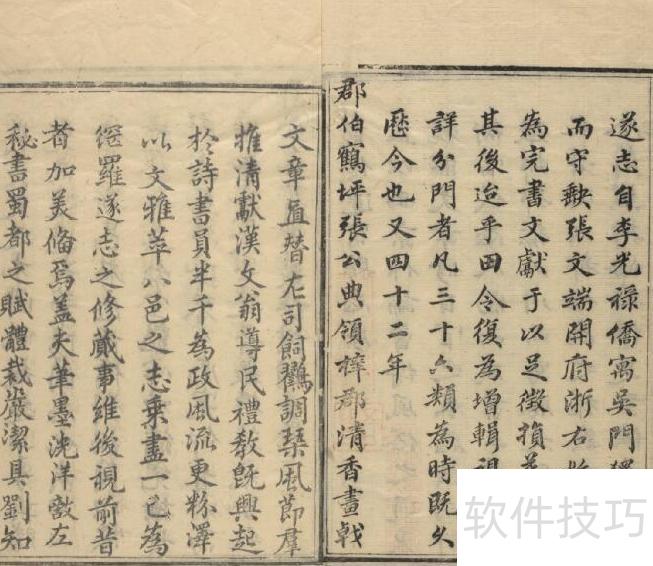 遂志自李光祿僑寓吳門
而守缺張文端開府浙右
為完書文獻于以足徵損
其後迨乎田令復為增輯視
詳分門者凡三十六類為時既久
歷今也又四十二年
郡伯鶴坪張公典領梓郡清香畫戟
文章直替左司飼鸛調琹風節羣
推清獻漢文翁導民禮教旣興起
於詩書員半千為政風流更粉澤
以文雅萃八邑之志乘盡一已為
網羅遂志之修蕆事維後視前昔
者加美備焉蓋夫筆墨洸洋敩左
秘書蜀都之賦體裁嚴潔具劉知
软件技巧